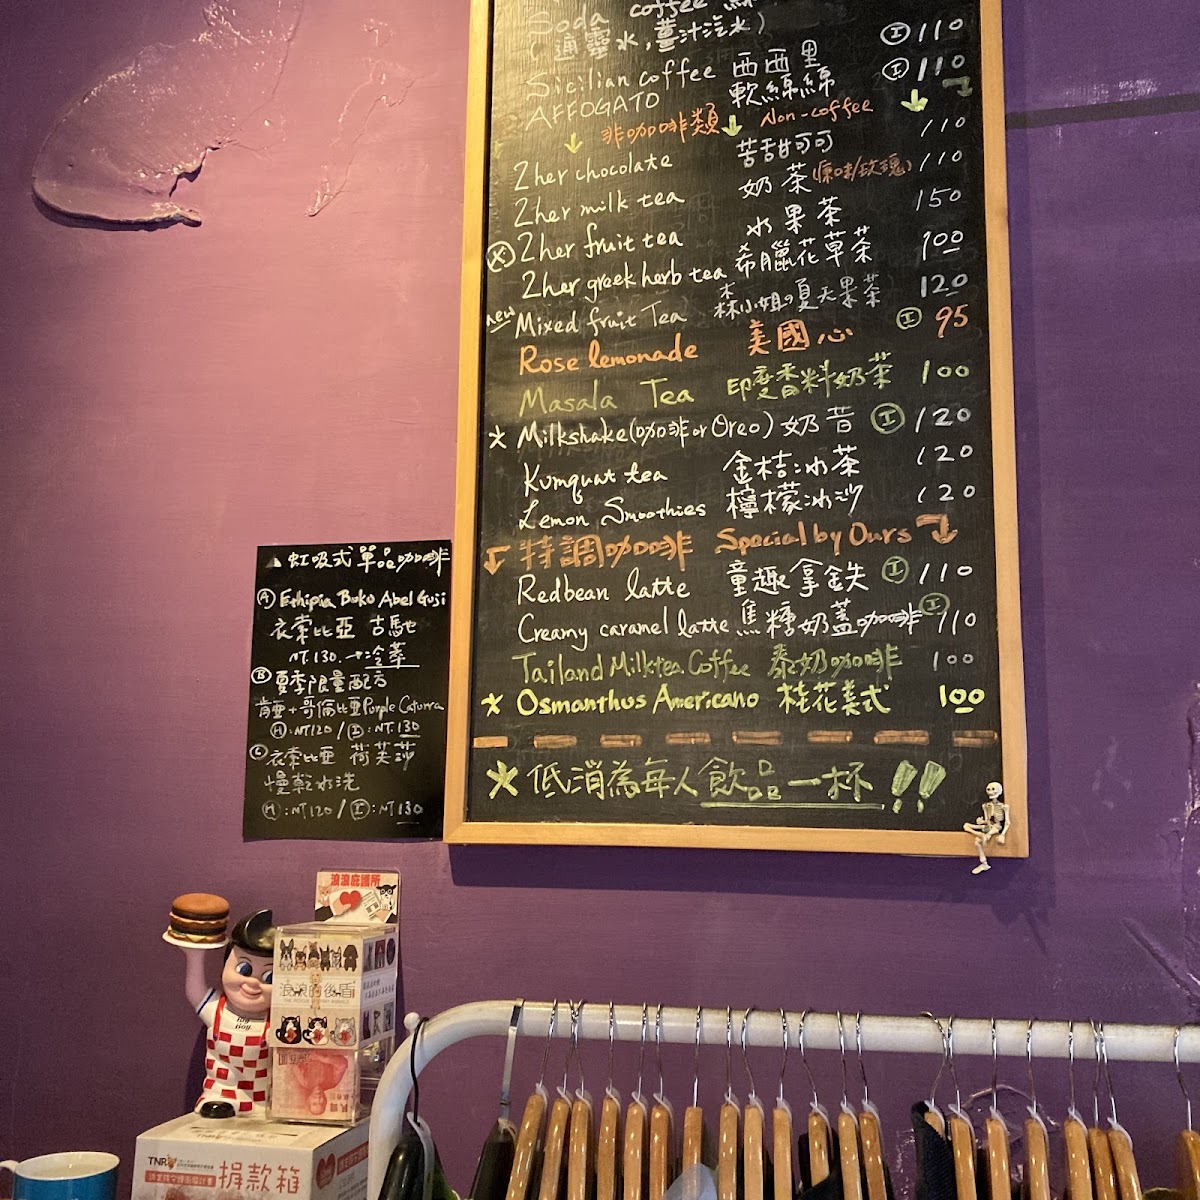 Soda coffee
(通靈水,薑汁汽水) Ⓘ 110
Sicilian coffee 西西里 Ⓘ 110
AFFOGATO 軟綿綿
非咖啡類 Non-coffee
2her chocolate 苦甜可可 110
2her milk tea 奶茶(原味/玫瑰) 110
2her fruit tea 水果茶 150
2her greek herb tea 希臘花草茶 100
new Mixed fruit Tea 林小姐の夏天果茶 120
Rose lemonade 美國心 Ⓘ 95
Masala Tea 印度香料奶茶 100
Milkshake(咖啡or Oreo) 奶昔 Ⓘ 120
Kumquat tea 金桔冰茶 120
Lemon Smoothies 檸檬冰沙 120
特調咖啡 Special by Ours
Redbean latte 童趣拿鉄 Ⓘ 110
Creamy caramel latte 焦糖奶蓋咖啡 Ⓘ 110
Tailand Milktea Coffee 泰奶咖啡 100
Osmanthus Americano 桂花美式 100
低消為每人飲品一杯!!
虹吸式單品咖啡
Ⓐ Ethipia Buko Abel Guji
衣索比亞 古馳
NT.130. →冷萃
Ⓑ 夏季限量配方
肯亞+哥倫比亞Purple Caturra
Ⓗ:NT120/Ⓘ:NT.130
Ⓒ 衣索比亞 荷芙莎
慢乾水洗
Ⓗ:NT120/Ⓘ:NT130
浪浪庇護所
浪浪的後盾
Big Boy
TNR
捐款箱